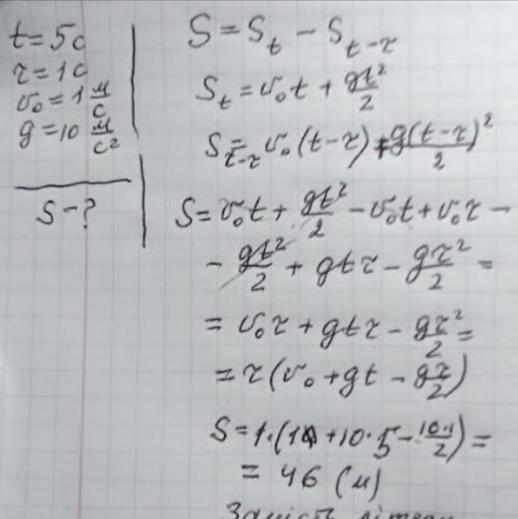 t = 5с
τ = 1с
v₀ = 1 м/с
g = 10 м/с²
S - ?
S = S_t - S_{t-τ}
S_t = v₀t + gt²/2
S_{t-τ} = v₀(t-τ) + g(t-τ)²/2
S = v₀t + gt²/2 - v₀t + v₀τ -
- gt²/2 + gtτ - gτ²/2 =
= v₀τ + gtτ - gτ²/2 =
= τ(v₀ + gt - gτ/2)
S = 1·(1 + 10·5 - 10·1/2) =
= 46 (м)